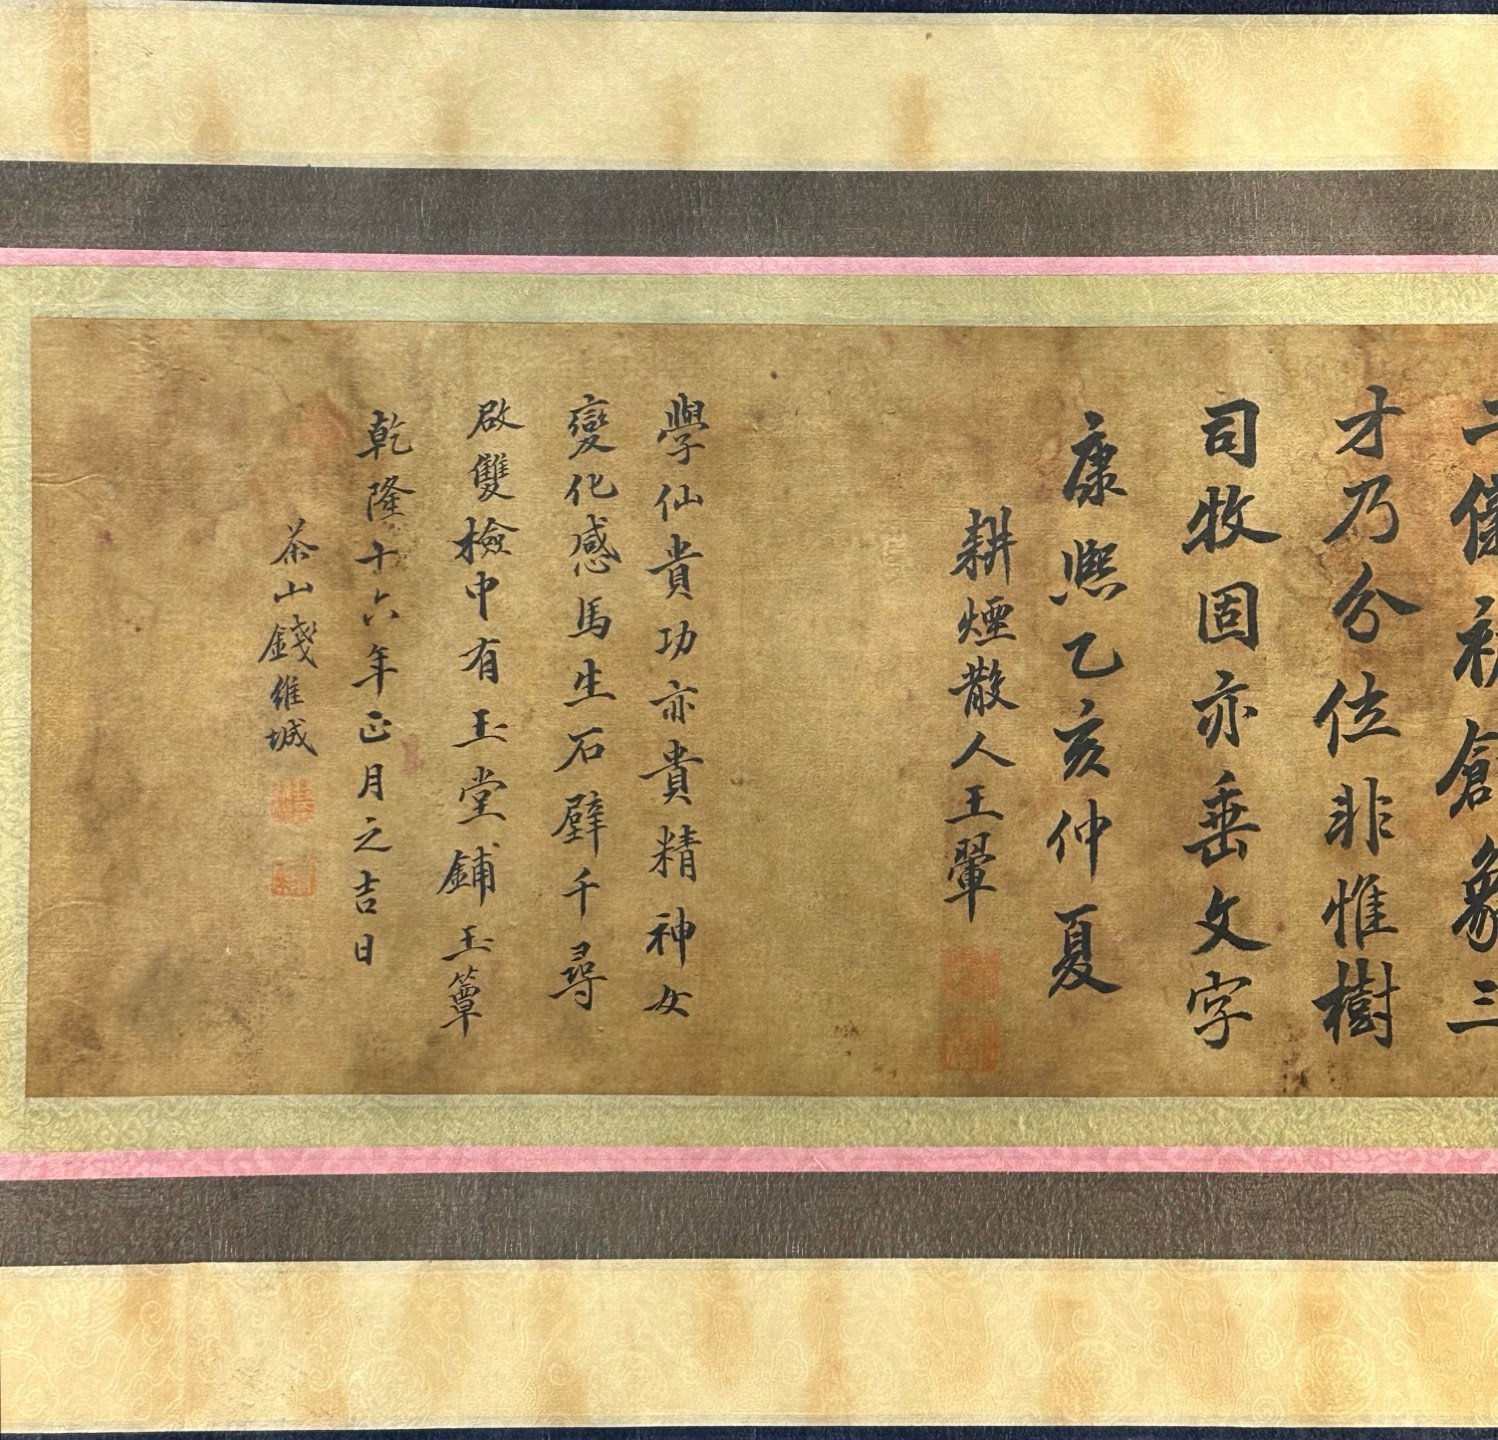 二儀初創象三
才乃分位非惟樹
司牧固亦垂文字
康熙乙亥仲夏
耕煙散人王翬
學仙貴功亦貴精神女
變化感馬生石壁千尋
啟雙檢中有玉堂鋪玉簟
乾隆十六年正月之吉日
茶山錢維城